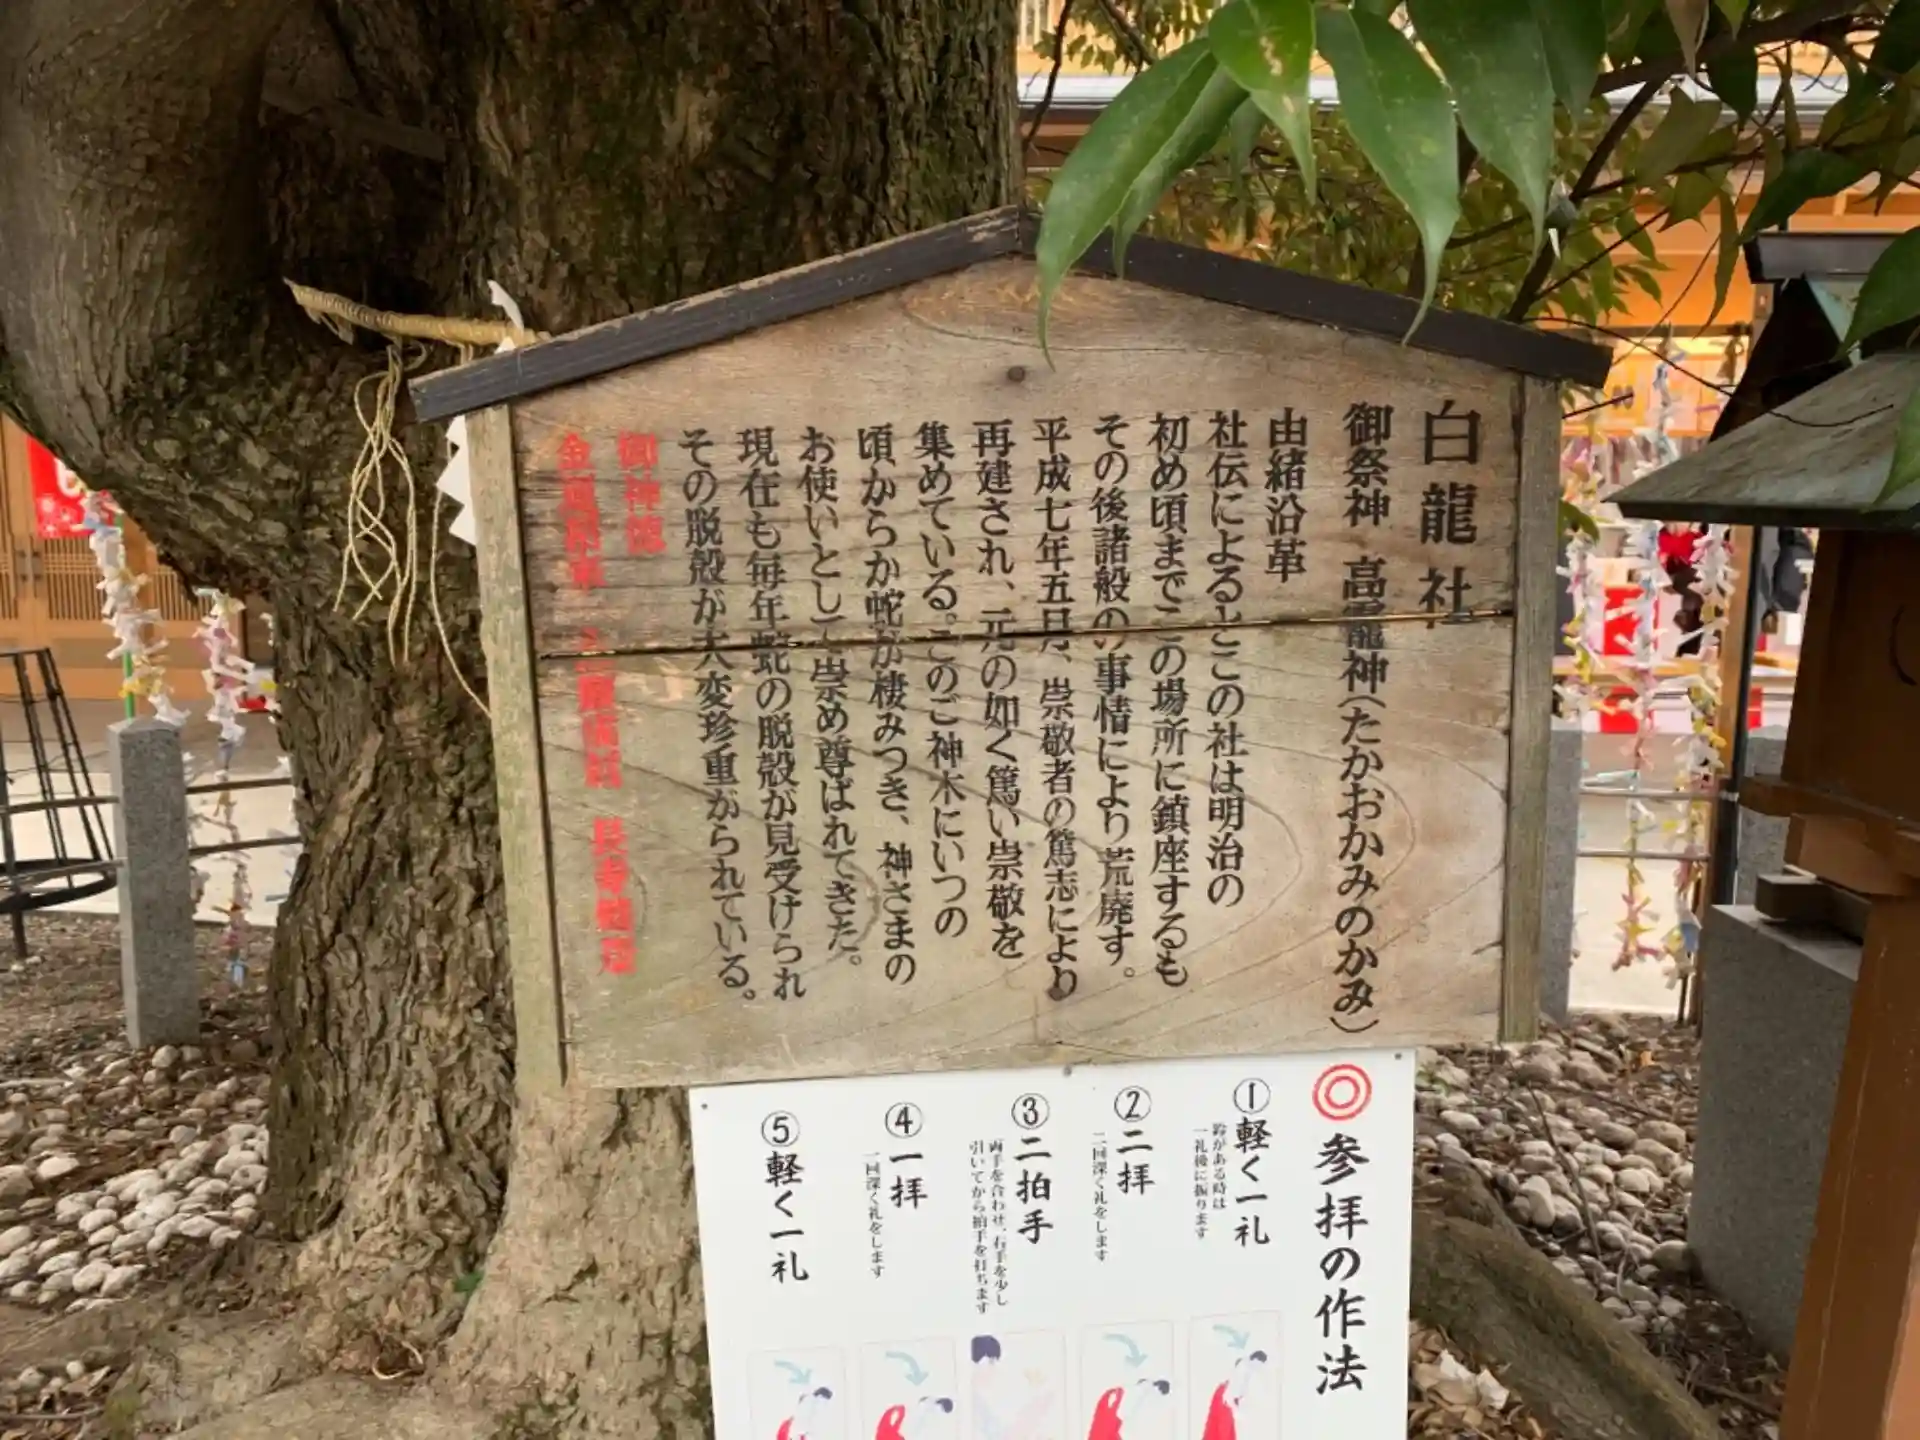 白龍社
御祭神 高龗龍神(たかおかみのかみ)
由緒沿革
社伝によるとこの社は明治の
初め頃までこの場所に鎮座するも
その後諸般の事情により荒廃す。
平成七年五月、崇敬者の篤志により
再建され、元の如く篤い崇敬を
集めている。このご神木にいつの
頃からか蛇が棲みつき、神さまの
お使いとして崇め尊ばれてきた。
現在も毎年蛇の脱殻が見受けられ
その脱殻が大変珍重がられている。
御神徳
◎参拝の作法
①軽く一礼
鈴がある時は
一礼後に振ります
②二拝
二回深く礼をします
③二拍手
両手を合わせ、右手を少し
引いてから拍手を打ちます
④一拝
一回深く礼をします
⑤軽く一礼